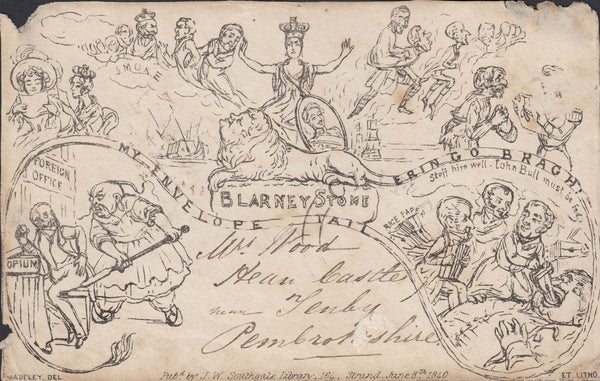 SMOKE
MY ENVELOPE TAIL
ERIN GO BRAGH!
BLARNEY STONE
Stuff him well. John Bull must be fed
FOREIGN
OFFICE
OPIUM
RICE PAPER
Mrs Wood
Hean Castle
near Tenby
Pembrokeshire
MADELEY, DEL
Pubd. by J. W. Southgate Library, 164, Strand, June 8th 1840
ET LITHO.